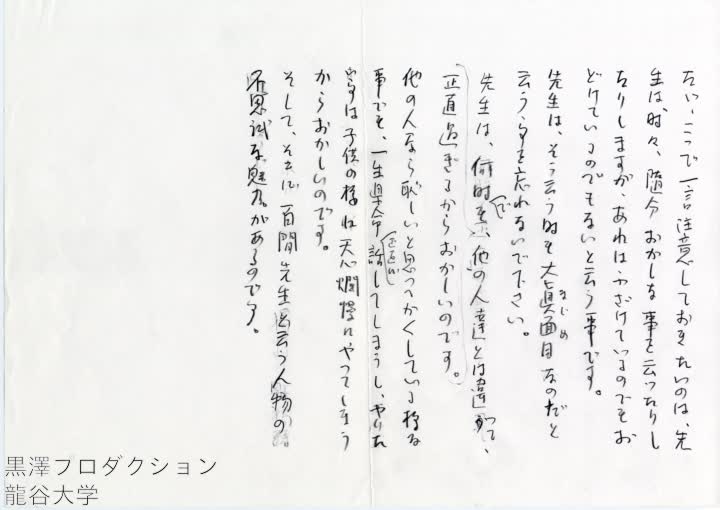 たゞ、こゝで一言注意しておきたいのは、先
生は、時々、随分おかしな事を云ったりし
たりしますが、あれはふざけているのでもお
どけているのでもないと云う事です。
先生は、そう云う時も大真面目なのだと
まじめ
云う事を忘れないで下さい。
先生は、何時でも、他の人達とは違って、
正直過ぎるからおかしいのです。
他の人なら恥しいと思ってかくしている様な
事でも、一生県命正直に話してしまうし、やりた
い事は子供の様に天心爛慢にやってしまう
からおかしいのです。
そして、そこに百間先生と云う人物の
不思議な魅力があるのです。
黒澤プロダクション
龍谷大学